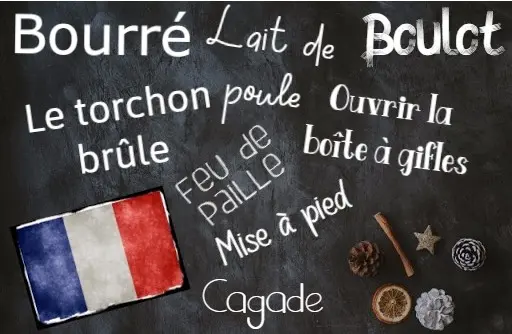 Bourré
Lait de
poule
Boulot
Le torchon
brûle
Ouvrir la
boîte à gifles
Feu de
Paille
Mise à pied
Cagade